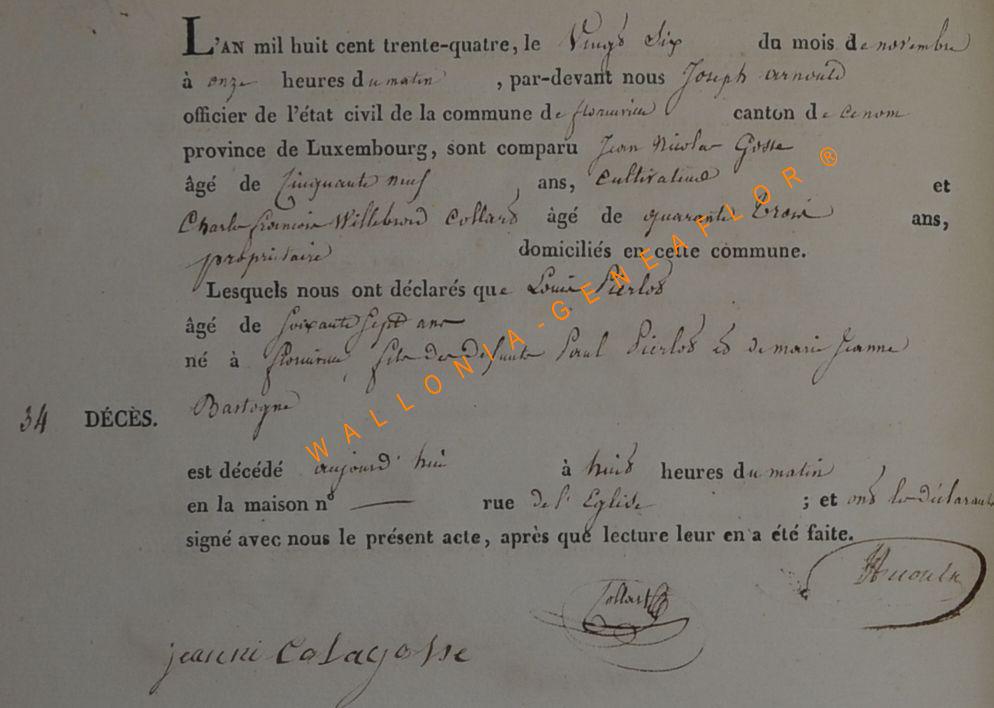 L'AN mil huit cent trente-quatre, le Vingt Six du mois de novembre
à onze heures du matin, par-devant nous Joseph arnould
officier de l'état civil de la commune de florenville canton de ce nom
province de Luxembourg, sont comparu Jean Nicolas Gosse
âgé de Cinquante neuf ans, Cultivateur et
Charles françois Willebrord Collard âgé de quarante trois ans,
propriétaire domiciliés en cette commune.
Lesquels nous ont déclarés que Louis Pierlot
âgé de Soixante Sept ans
né à florenville, fils des défunts Paul Pierlot et de marie Jeanne
34 DÉCÈS. Bastogne
est décédé aujourd'hui à huit heures du matin
en la maison n° — rue de l'Eglise ; et ont les déclarants
signé avec nous le présent acte, après que lecture leur en a été faite.
Collart
jean ni colagosse
WALLONIA-GENEAFLOR ®